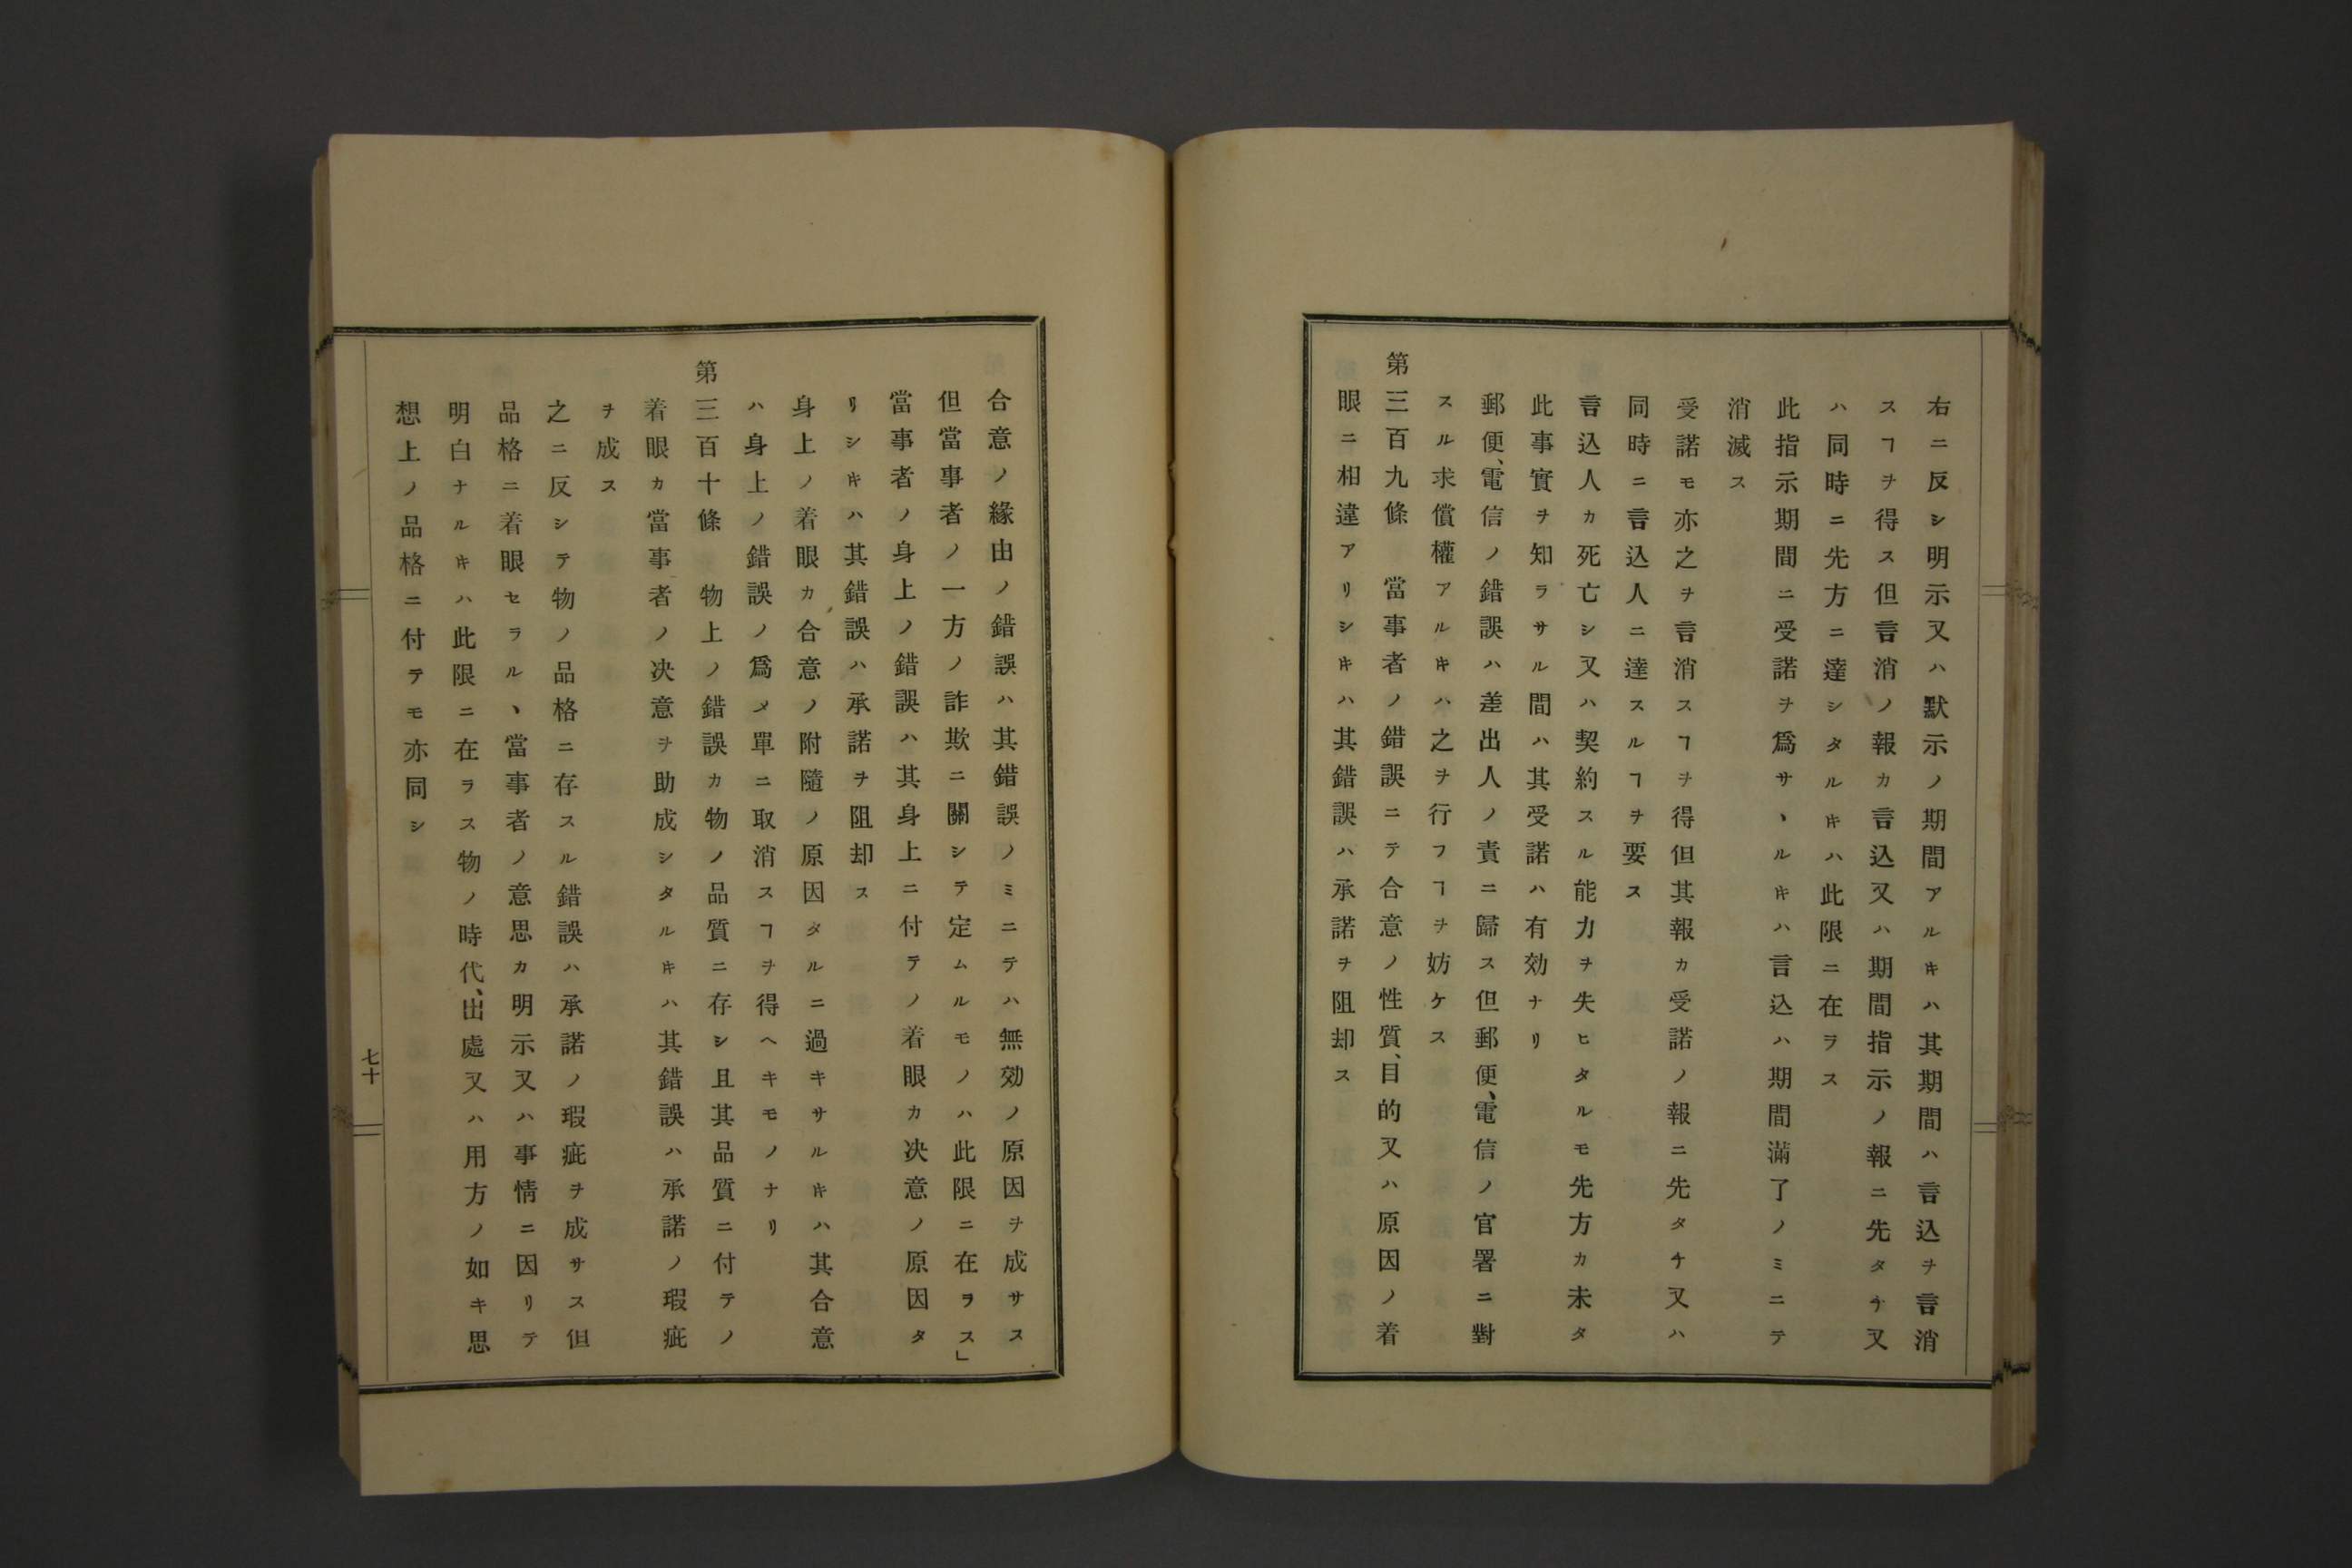 右ニ反シ明示又ハ默示ノ期間アルキハ其期間ハ言込ヲ言消
スヿヲ得ス但言消ノ報カ言込又ハ期間指示ノ報ニ先タチ又
ハ同時ニ先方ニ達シタルキハ此限ニ在ラス
此指示期間ニ受諾ヲ爲サヽルキハ言込ハ期間滿了ノミニテ
消滅ス
受諾モ亦之ヲ言消スヿヲ得但其報カ受諾ノ報ニ先タチ又ハ
同時ニ言込人ニ達スルヿヲ要ス
言込人カ死亡シ又ハ契約スル能力ヲ失ヒタルモ先方カ未タ
此事實ヲ知ラサル間ハ其受諾ハ有効ナリ
郵便、電信ノ錯誤ハ差出人ノ責ニ歸ス但郵便、電信ノ官署ニ對
スル求償權アルキハ之ヲ行フヿヲ妨ケス
第三百九條　當事者ノ錯誤ニテ合意ノ性質、目的又ハ原因ノ着
眼ニ相違アリシキハ其錯誤ハ承諾ヲ阻却ス
合意ノ緣由ノ錯誤ハ其錯誤ノミニテハ無効ノ原因ヲ成サス
但當事者ノ一方ノ詐欺ニ關シテ定ムルモノハ此限ニ在ヲス」
當事者ノ身上ノ錯誤ハ其身上ニ付テノ着眼カ决意ノ原因タ
リシキハ其錯誤ハ承諾ヲ阻却ス
身上ノ着眼カ合意ノ附隨ノ原因タルニ過キサルキハ其合意
ハ身上ノ錯誤ノ爲メ單ニ取消スヿヲ得ヘキモノナリ
第三百十條　物上ノ錯誤カ物ノ品質ニ存シ且其品質ニ付テノ
着眼カ當事者ノ决意ヲ助成シタルキハ其錯誤ハ承諾ノ瑕疵
ヲ成ス
之ニ反シテ物ノ品格ニ存スル錯誤ハ承諾ノ瑕疵ヲ成サス但
品格ニ着眼セラルヽ當事者ノ意思カ明示又ハ事情ニ因リテ
明白ナルキハ此限ニ在ラス物ノ時代、出處又ハ用方ノ如キ思
想上ノ品格ニ付テモ亦同シ
七十